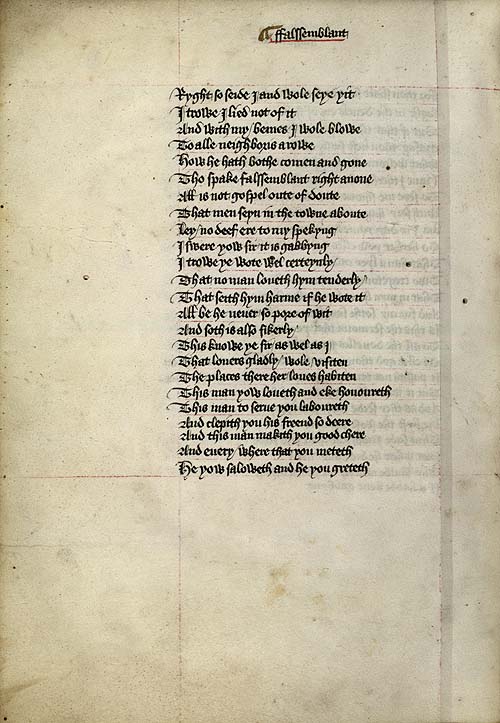 ffalssemblant
Ryght so seide I and wole seye yit
I trowe I lied not of it
And with my bemes I wole blowe
To alle neighboris a rowe
How he hath bothe comen and gone
Tho spake falssemblant right anone
All is not gospel oute of doute
That men seyn in the towne aboute
Ley no deef ere to my spekyng
I swere yow sir it is gabbyng
I trowe ye wote wel certeynly
That no man loueth hym tenderly
That seith hym harme if he wote it
All be he neuer so pore of wit
And soth is also sikerly
This knowe ye sir as wel as I
That louers gladly wole visiten
The places there her loues habiten
This man yow loueth and eke honoureth
This man to serue you laboureth
And clepith you his freend so deere
And this man makith you good chere
And euery where that you meteth
He yow saloweth and he you greteth